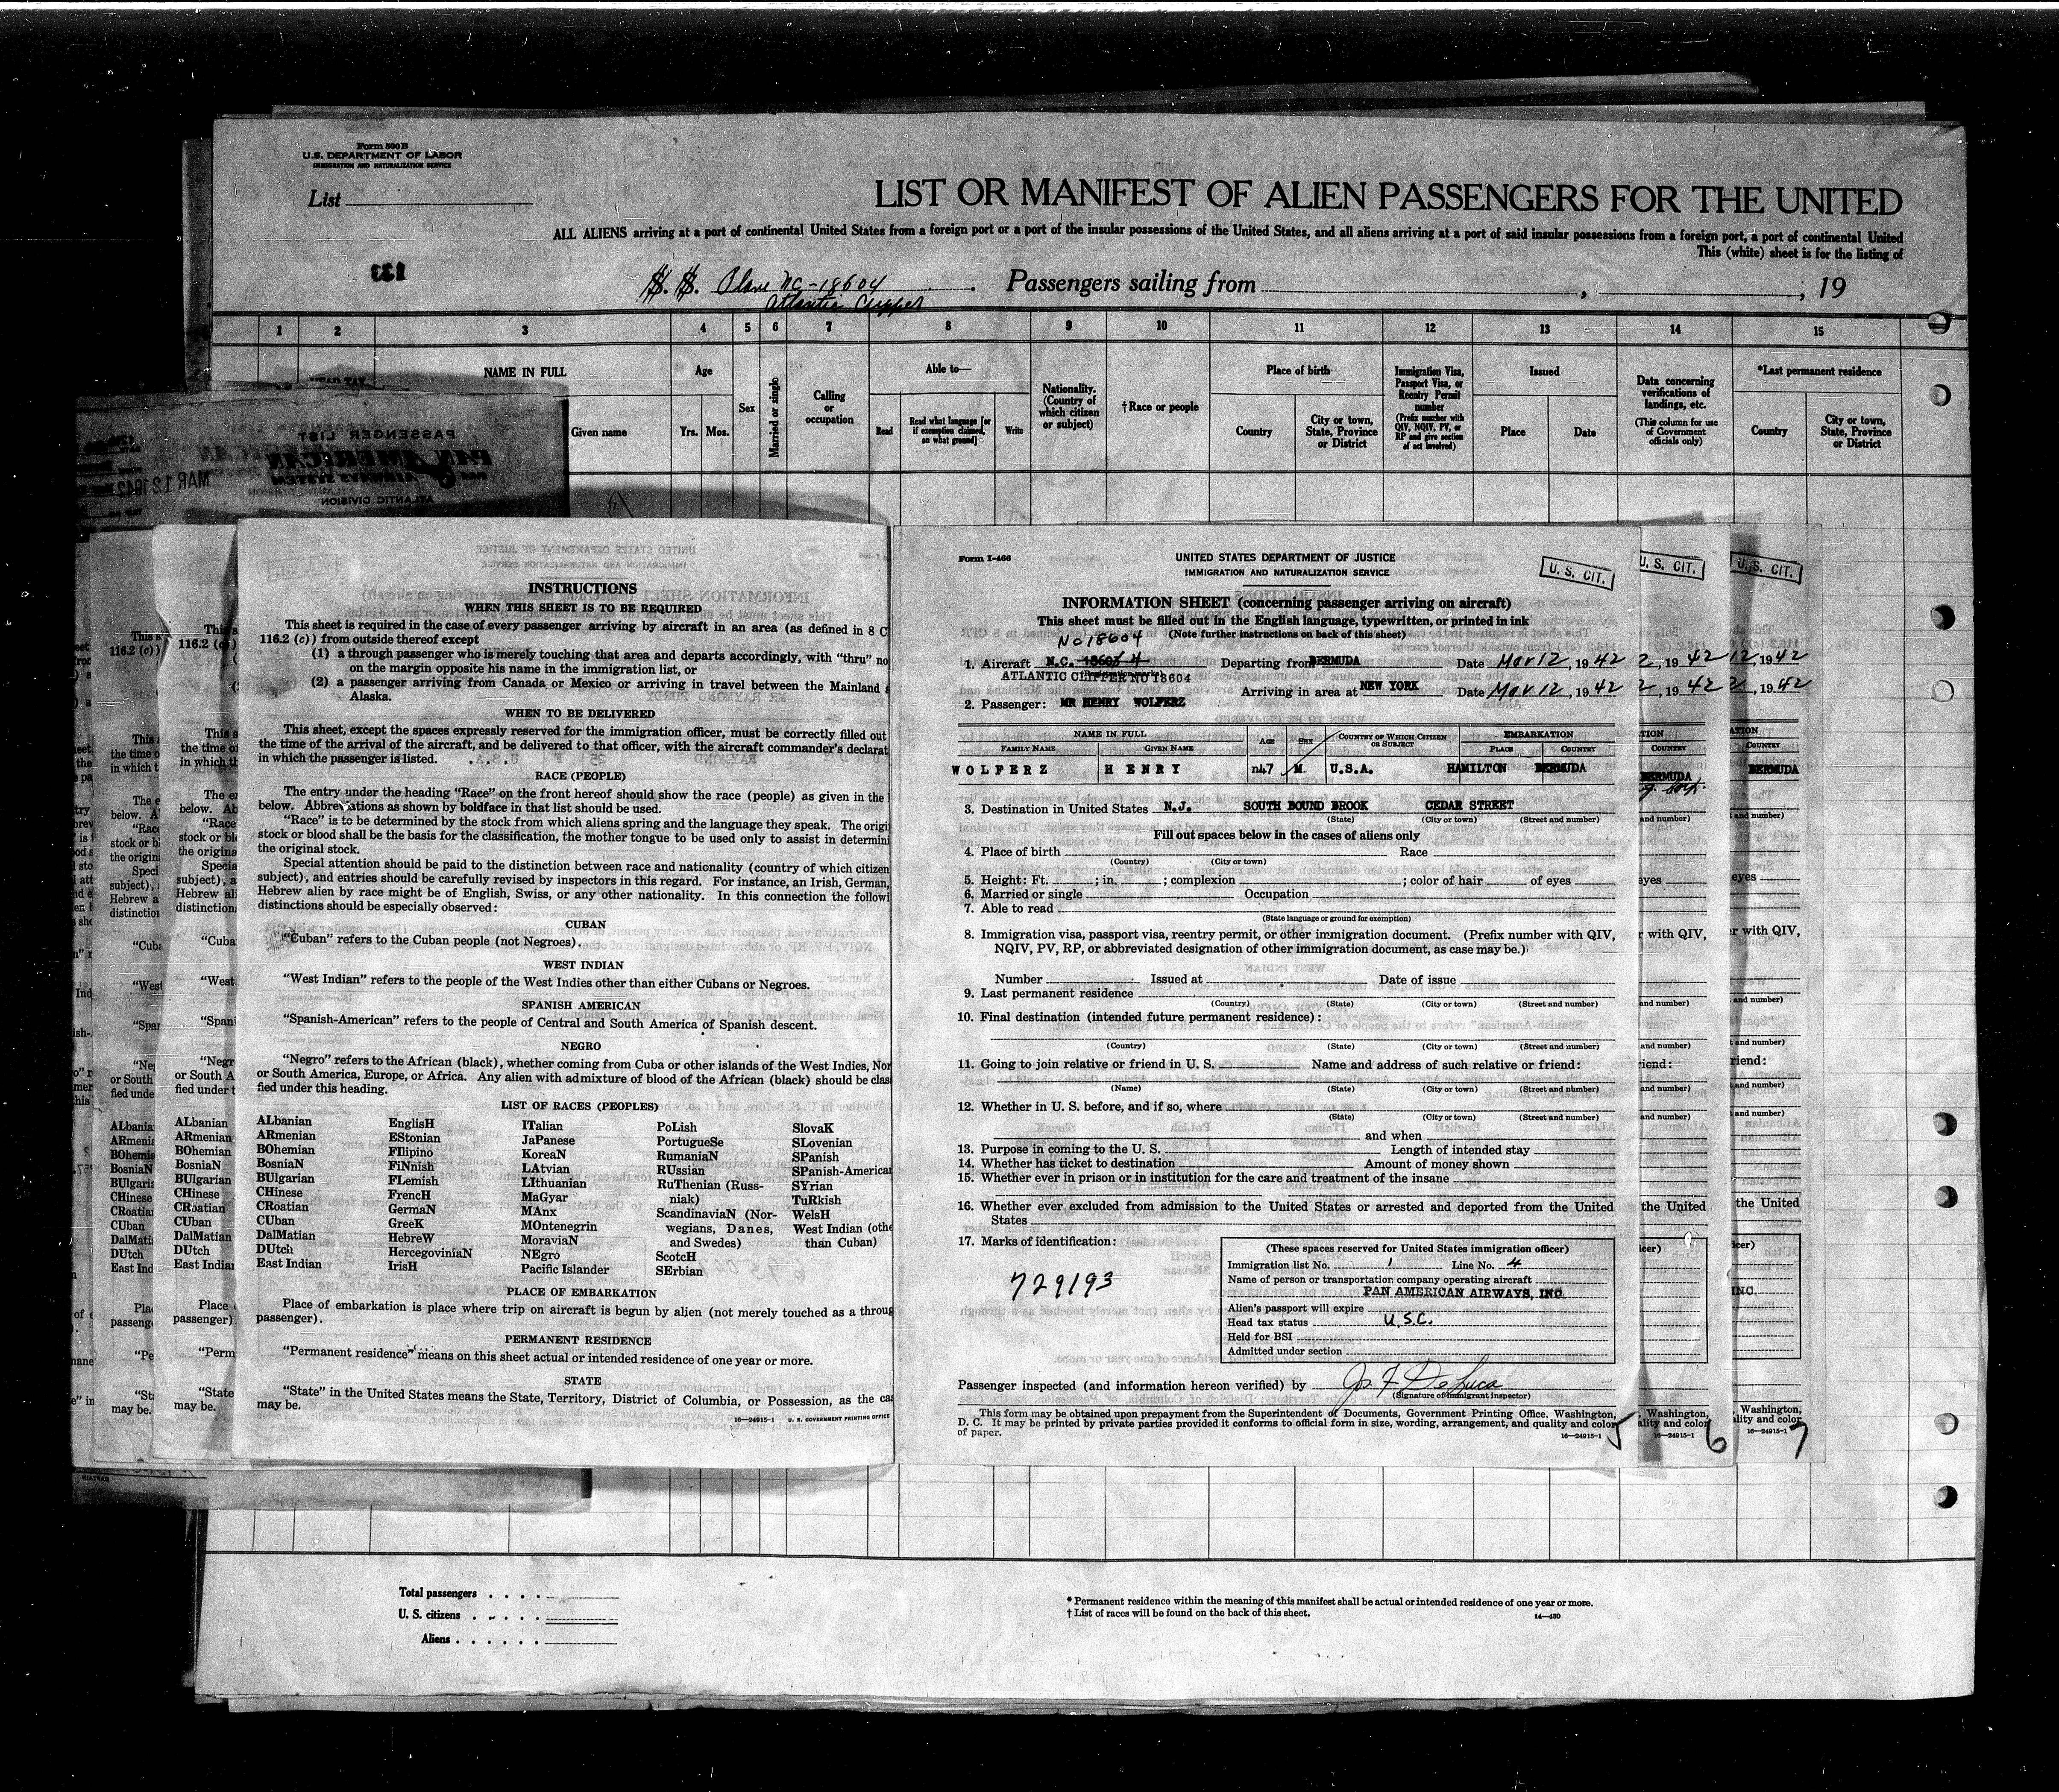 Form 500B
U.S. DEPARTMENT OF LABOR
IMMIGRATION AND NATURALIZATION SERVICE
List
LIST OR MANIFEST OF ALIEN PASSENGERS FOR THE UNITED
ALL ALIENS arriving at a port of continental United States from a foreign port or a port of the insular possessions of the United States, and all aliens arriving at a port of said insular possessions from a foreign port, a port of continental United
This (white) sheet is for the listing of
S. S. Plane NC-18604
Atlantic Clipper
Passengers sailing from , , 19
1 2 3 4 5 6 7 8 9 10 11 12 13 14 15
NAME IN FULL
Given name
Age
Yrs. Mos.
Sex
Married or single
Calling or occupation
Able to—
Read
Read what language [or if exemption claimed, on what ground]
Write
Nationality. (Country of which citizen or subject)
†Race or people
Place of birth
Country
City or town, State, Province or District
Immigration Visa, Passport Visa, or Reentry Permit number
(Prefix number with QIV, NQIV, PV, or RP and give section of act involved)
Issued
Place
Date
Data concerning verifications of landings, etc.
(This column for use of Government officials only)
*Last permanent residence
Country
City or town, State, Province or District
PASSENGER LIST
PAN AMERICAN
AIRWAYS SYSTEM
ATLANTIC DIVISION
MAR 12 1942
INSTRUCTIONS
WHEN THIS SHEET IS TO BE REQUIRED
This sheet is required in the case of every passenger arriving by aircraft in an area (as defined in 8 C
116.2 (c)) from outside thereof except
(1) a through passenger who is merely touching that area and departs accordingly, with "thru" no
on the margin opposite his name in the immigration list, or
(2) a passenger arriving from Canada or Mexico or arriving in travel between the Mainland
Alaska.
WHEN TO BE DELIVERED
This sheet, except the spaces expressly reserved for the immigration officer, must be correctly filled out
the time of the arrival of the aircraft, and be delivered to that officer, with the aircraft commander's declarat
in which the passenger is listed.
RACE (PEOPLE)
The entry under the heading "Race" on the front hereof should show the race (people) as given in the
below. Abbreviations as shown by boldface in that list should be used.
"Race" is to be determined by the stock from which aliens spring and the language they speak. The origi
stock or blood shall be the basis for the classification, the mother tongue to be used only to assist in determini
the original stock.
Special attention should be paid to the distinction between race and nationality (country of which citizen
subject), and entries should be carefully revised by inspectors in this regard. For instance, an Irish, German,
Hebrew alien by race might be of English, Swiss, or any other nationality. In this connection the followi
distinctions should be especially observed:
CUBAN
"Cuban" refers to the Cuban people (not Negroes).
WEST INDIAN
"West Indian" refers to the people of the West Indies other than either Cubans or Negroes.
SPANISH AMERICAN
"Spanish-American" refers to the people of Central and South America of Spanish descent.
NEGRO
"Negro" refers to the African (black), whether coming from Cuba or other islands of the West Indies, Nor
or South America, Europe, or Africa. Any alien with admixture of blood of the African (black) should be clas
fied under this heading.
LIST OF RACES (PEOPLES)
ALbanian
ARmenian
BOhemian
BosniaN
BUlgarian
CHinese
CRoatian
CUban
DalMatian
DUtch
East Indian
EnglisH
EStonian
FIlipino
FiNnish
FLemish
FrencH
GermaN
GreeK
HebreW
HercegoviniaN
IrisH
ITalian
JaPanese
KoreaN
LAtvian
LIthuanian
MaGyar
MAnx
MOntenegrin
MoraviaN
NEgro
Pacific Islander
PoLish
PortugueSe
RumaniaN
RUssian
RuThenian (Russ-
niak)
ScandinaviaN (Nor-
wegians, Danes,
and Swedes)
ScotcH
SErbian
SlovaK
SLovenian
SPanish
SPanish-American
SYrian
TuRkish
WelsH
West Indian (othe
than Cuban)
PLACE OF EMBARKATION
Place of embarkation is place where trip on aircraft is begun by alien (not merely touched as a throug
passenger).
PERMANENT RESIDENCE
"Permanent residence" means on this sheet actual or intended residence of one year or more.
STATE
"State" in the United States means the State, Territory, District of Columbia, or Possession, as the cas
may be.
16—24915-1 U. S. GOVERNMENT PRINTING OFFICE
Form I-466
UNITED STATES DEPARTMENT OF JUSTICE
IMMIGRATION AND NATURALIZATION SERVICE
U. S. CIT.
U. S. CIT.
U. S. CIT.
INFORMATION SHEET (concerning passenger arriving on aircraft)
This sheet must be filled out in the English language, typewritten, or printed in ink
(Note further instructions on back of this sheet)
No 18604
1. Aircraft N.C. 18604 Departing from BERMUDA Date Mar 12, 1942
ATLANTIC CLIPPER NO 18604
Arriving in area at NEW YORK Date Mar 12, 1942
2. Passenger: MR HENRY WOLFERZ
NAME IN FULL
FAMILY NAME GIVEN NAME AGE SEX COUNTRY OF WHICH CITIZEN OR SUBJECT EMBARKATION
PLACE COUNTRY
WOLFERZ HENRY 47 M. U.S.A. HAMILTON BERMUDA
3. Destination in United States N.J. SOUTH BOUND BROOK CEDAR STREET
(State) (City or town) (Street and number)
Fill out spaces below in the cases of aliens only
4. Place of birth Race
(Country) (City or town)
5. Height: Ft. ; in. ; complexion ; color of hair of eyes
6. Married or single Occupation
7. Able to read
(State language or ground for exemption)
8. Immigration visa, passport visa, reentry permit, or other immigration document. (Prefix number with QIV,
NQIV, PV, RP, or abbreviated designation of other immigration document, as case may be.)
Number Issued at Date of issue
9. Last permanent residence
(Country) (State) (City or town) (Street and number)
10. Final destination (intended future permanent residence):
(Country) (State) (City or town) (Street and number)
11. Going to join relative or friend in U. S. Name and address of such relative or friend:
(Name) (State) (City or town) (Street and number)
12. Whether in U. S. before, and if so, where
(State) (City or town) (Street and number)
and when
13. Purpose in coming to the U. S. Length of intended stay
14. Whether has ticket to destination Amount of money shown
15. Whether ever in prison or in institution for the care and treatment of the insane
16. Whether ever excluded from admission to the United States or arrested and deported from the United
States
17. Marks of identification:
729193
(These spaces reserved for United States immigration officer)
Immigration list No. 1 Line No. 4
Name of person or transportation company operating aircraft
PAN AMERICAN AIRWAYS, INC.
Alien's passport will expire
Head tax status U.S.C.
Held for BSI
Admitted under section
Passenger inspected (and information hereon verified) by Jos F DeLuca
(Signature of immigrant inspector)
This form may be obtained upon prepayment from the Superintendent of Documents, Government Printing Office, Washington,
D. C. It may be printed by private parties provided it conforms to official form in size, wording, arrangement, and quality and color
of paper.
16—24915-1
5
6
7
Total passengers
U. S. citizens
Aliens
* Permanent residence within the meaning of this manifest shall be actual or intended residence of one year or more.
† List of races will be found on the back of this sheet.
14—430